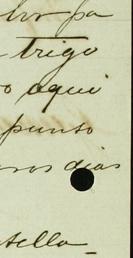 por pa
trigo
o aqui
punto
sos dias
stella